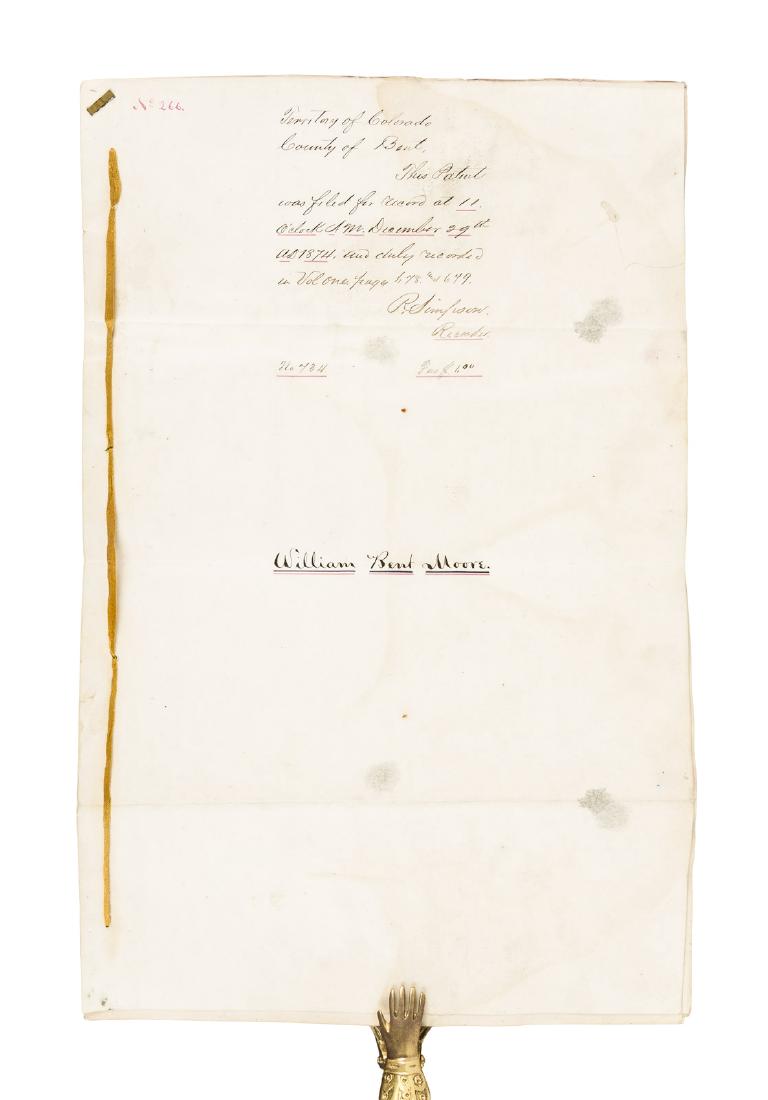 No 266.
Territory of Colorado
County of Bent.
This Patent
was filed for record at 11.
O'clock A.M. December 29th
AD 1874. and duly recorded
in Vol one pages 678. and 679.
R. Simpson.
Recorder.
No 734 Fees $
William Bent Moore.